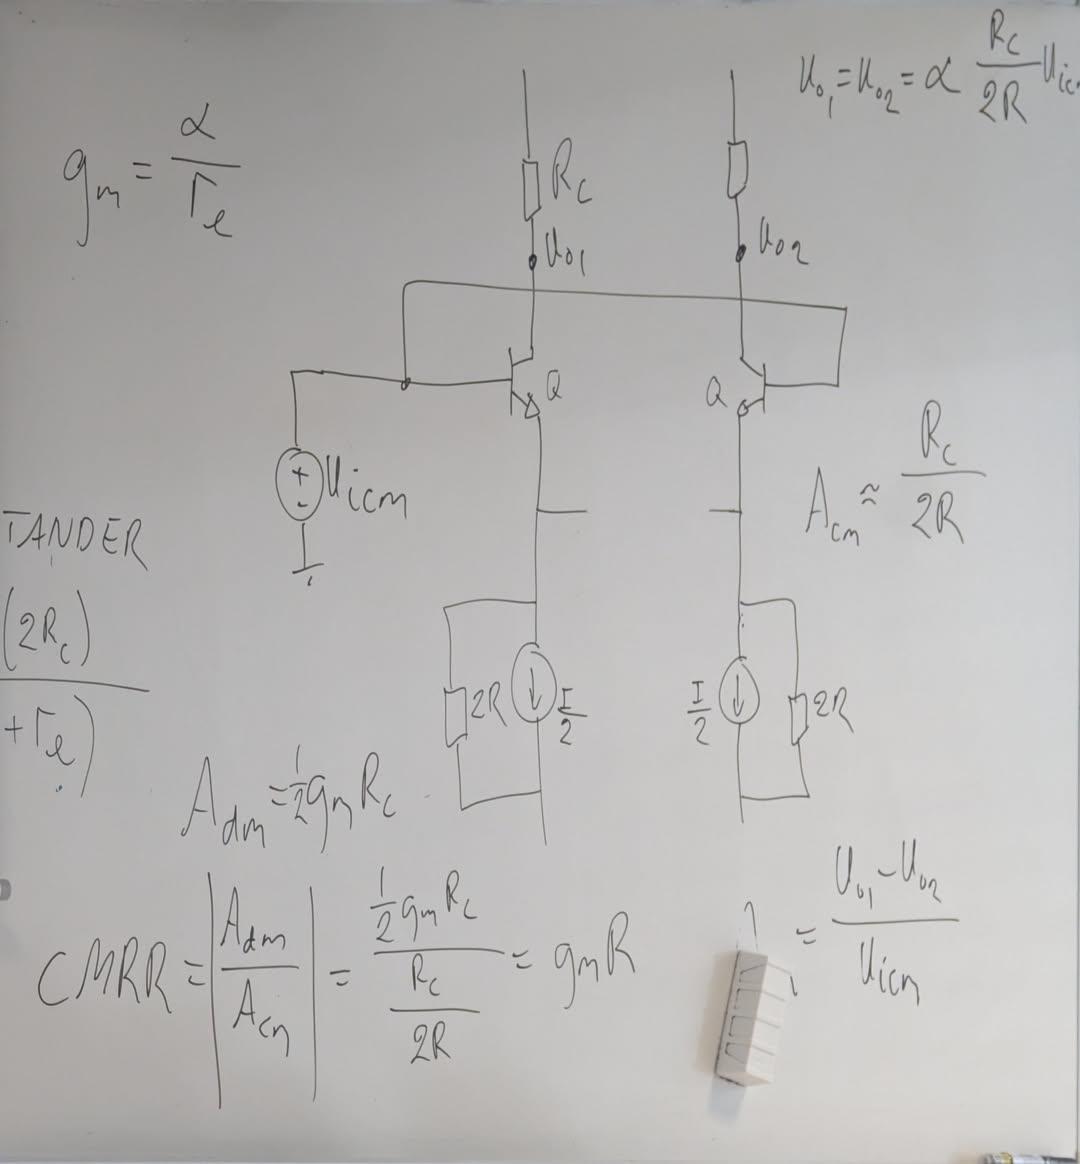 u_{o1} = u_{o2} = α \frac{R_C}{2R} u_{icm}
g_m = \frac{α}{r_e}
R_C
u_{o1}
u_{o2}
Q
Q
+
-
u_{icm}
A_{cm} ≈ \frac{R_C}{2R}
TANDER
(2R_C)
+ r_e)
2R
\frac{I}{2}
\frac{I}{2}
2R
A_{dm} = \frac{1}{2} g_m R_C
CMRR = |\frac{A_{dm}}{A_{cm}}| = \frac{\frac{1}{2} g_m R_C}{\frac{R_C}{2R}} = g_m R
= \frac{u_{o1} - u_{o2}}{u_{icm}}